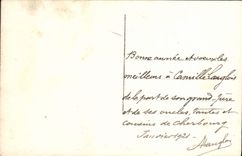 Bonne année et vœux les
meilleurs à Camille Langlois
de la part de son grand père
et de ses oncles, tantes et
cousins de Cherbourg
Janvier 1921